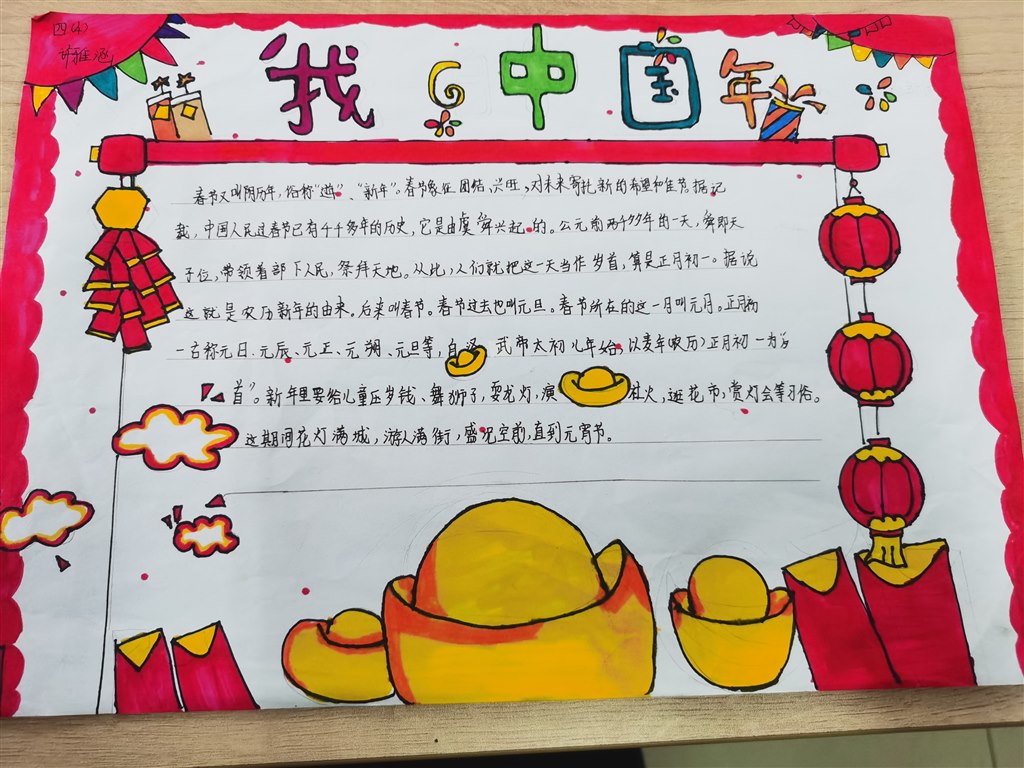 四(4)
雅涵
我 中国年
春节又叫阴历年，俗称“”、“新年”。春节象征团结、兴旺，对未来寄托新的希望和佳节。据记
载，中国人民过春节已有千千多年的历史，它是由虞舜兴起的。公元前两千多年的一天，舜即天
子位，带领着部下人民，祭拜天地。从此，人们就把这一天当作岁首，算是正月初一。据说
这就是农历新年的由来。后来叫春节。春节过去也叫元旦。春节所在的这一月叫元月。正月初
一古称元日、元辰、元正、元朔、元旦等，自汉武帝太初儿年始，以夏年(农历)正月初一为“岁
首”。新年里要给儿童压岁钱、舞狮子，耍龙灯，演社火，逛花市，赏灯会等习俗。
这期间花灯满城，游人满街，盛况空前，直到元宵节。